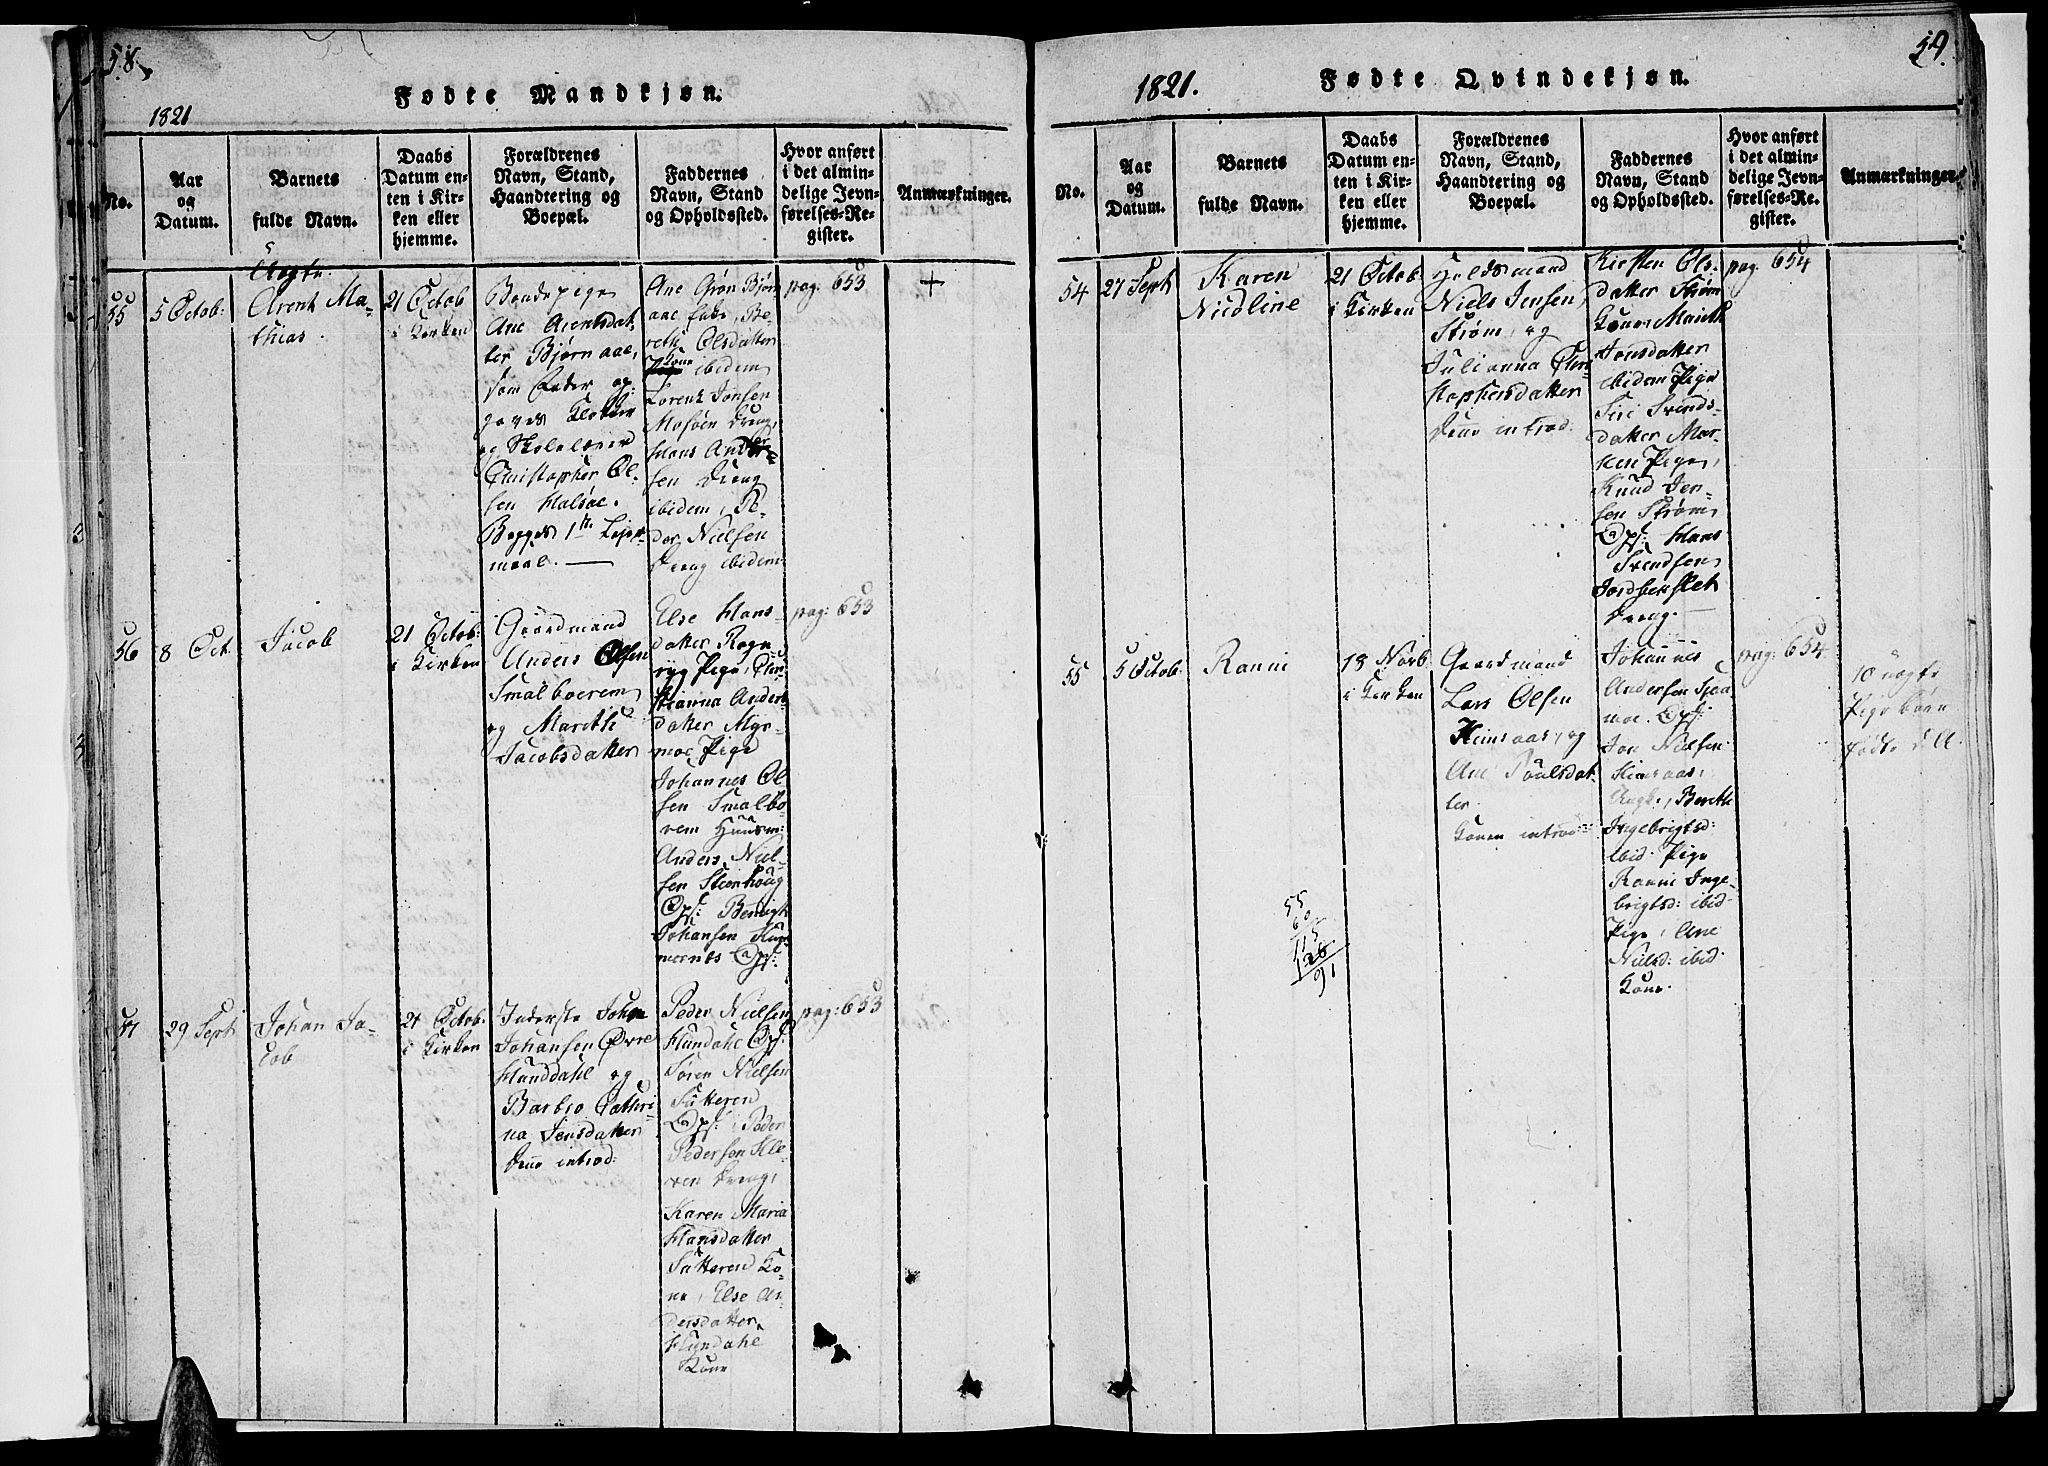 58
Fødte Mandkjøn.
1821
No.
Aar
og
Datum.
Barnets
fulde Navn.
Daabs
Datum en-
ten i Kir-
ken eller
hjemme.
Forældrenes
Navn, Stand,
Haandtering og
Boepæl.
Faddernes
Navn, Stand
og Opholdssted.
Hvor anført
i det almin-
delige Jevn-
førelses-Re-
gister.
Anmærkninger.
55
5 Octob:
Uægte.
Arent Ma-
thias.
21 Octob
i Kirken
Bondepige
Ane Arentsdat-
ter Bjørnaae,
som Fader op-
gaves Klokker
og Skolelærer
Christopher Ol-
sen Halsøe.
Begges 1ste Leier-
maal.
Ane Grøn Bjørn
aae Enke, Be-
reth Olsdatter
Kone ibidem
Lorentz Jonsen
Mosøen Dreng,
Hans Ander-
sen Dreng
ibidem, Pe-
der Nielsen
Dreng ibidem
pag: 653
+
56
8 Oct.
Jacob
21 Octob:
i Kirken
Gaardmand
Anders Olsen
Smalboerem
og Marethe
Jacobsdatter
Else Hans
datter
Pige, Chri-
stianna Anders
datter Myr-
moe Pige
Johannes Ol
sen Smalbo
rem Huusm:
Anders Niel-
sen Steenhoug
Ops: Bendigt
Johansen
Ops:
pag: 653
57
29 Sept
Johan Ja-
cob
21 Octob.
i Kirken
Inderste Johan
Johansen Øvre
Hunddahl og
Barbro Cathri-
na Jensdatter
Denne introd:
Peder Nielsen
Hundahl Ops:
Søren Nielsen
Sætteren
Ops: Peder
Pedersen Kle-
ven Dreng,
Karen Maria
Hansdatter
Sætteren Ko-
ne, Else An
dersdatter
Hundahl
Kone
pag: 653
59.
1821.
Fødte Qvindekjøn.
No.
Aar
og
Datum.
Barnets
fulde Navn.
Daabs
Datum en-
ten i Kir-
ken eller
hjemme.
Forældrenes
Navn, Stand,
Haandtering og
Boepæl.
Faddernes
Navn, Stand
og Opholdssted.
Hvor anført
i det almin-
delige Jevn-
førelses-Re-
gister.
Anmærkninger.
54
27 Sept
Karen
Nicoline
21 Octob
i Kirken
Huusmand
Niels Jensen
Strøm, og
Julianna Chri-
stophersdatter
Denne introd.
Kirsten Ols-
datter Strøm
Kone, Marith
Jonsdatter
ibidem Pige
Siri Svends-
datter Mar-
ken Pige,
Knud Jen-
sen Strøm
Ops: Hans
Svendsen
Dreng.
pag: 654
55
5 Octob.
Ranni
18 Novb.
i Kirken
Gaardmand
Lars Olsen
Hemsaas, og
Ane Poulsdat-
ter.
Konen introd:
Johannes
Andersen
moe. Ops:
Jon Nielsen
Hemsaas,
Bereth
Ingebrigtsd:
ibid. Pige
Ranni Inge-
brigtsd: ibid-
Pige, Ane
Nielsd: ibid.
Kone.
pag: 654
10 uægte
Pigebørn
fødte d.A.
55
60
115
91